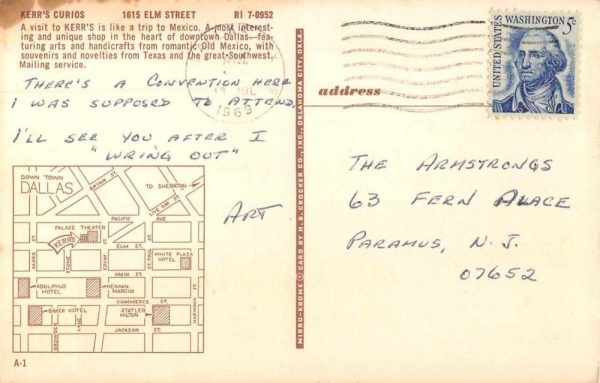 KERR'S CURIOS 1615 ELM STREET RI 7-0952
A visit to KERR'S is like a trip to Mexico. A most interest-
ing and unique shop in the heart of downtown Dallas—fea-
turing arts and handicrafts from romantic Old Mexico, with
souvenirs and novelties from Texas and the great Southwest.
Mailing service.
THERE'S A CONVENTION HERE
I WAS SUPPOSED TO ATTEND
I'LL SEE YOU AFTER I
"WRING OUT"
ART
JUL
1969
UNITED STATES
WASHINGTON 5c
address
THE ARMSTRONGS
63 FERN PLACE
PARAMUS, N. J.
07652
MIRRO-KROME ® CARD BY H. S. CROCKER CO., INC., OKLAHOMA CITY, OKLA.
DOWN TOWN
DALLAS
BRYAN ST.
TO SHERATON
LIVE OAK ST.
PACIFIC AVE
PALACE THEATER
KERR'S
ELM ST.
AKARD ST.
STONE
ERVAY ST.
ST. PAUL
WHITE PLAZA
HOTEL
MAIN ST.
ADOLPHUS
HOTEL
NEIMAN
MARCUS
COMMERCE ST.
HARWOOD ST.
BAKER HOTEL
STATLER
HILTON
JACKSON ST.
BROWDER
LANE
A-1